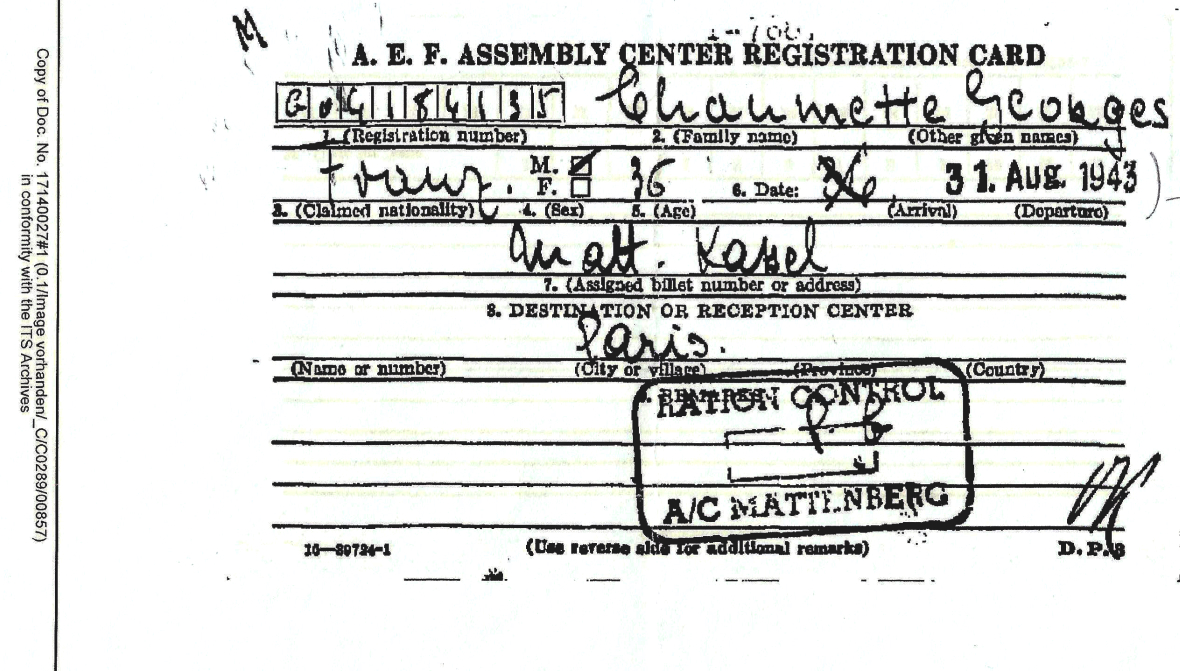 M
A. E. F. ASSEMBLY CENTER REGISTRATION CARD
G 0 4 1 8 4 1 3 5 Chaumette Georges
1. (Registration number) 2. (Family name) (Other given names)
franz. M. F. 36 6. Date: 36 31. Aug. 1943
3. (Claimed nationality) 4. (Sex) 5. (Age) (Arrival) (Departure)
Matt. Kassel
7. (Assigned billet number or address)
8. DESTINATION OR RECEPTION CENTER
Paris.
(Name or number) (City or village) (Province) (Country)
RATION CONTROL
A/C MATTENBERG
16—39724-1 (Use reverse side for additional remarks) D.P.
Copy of Doc. No. 17140027#1 (0.1/Image vorhanden/_C/C0289/00857)
in conformity with the ITS Archives